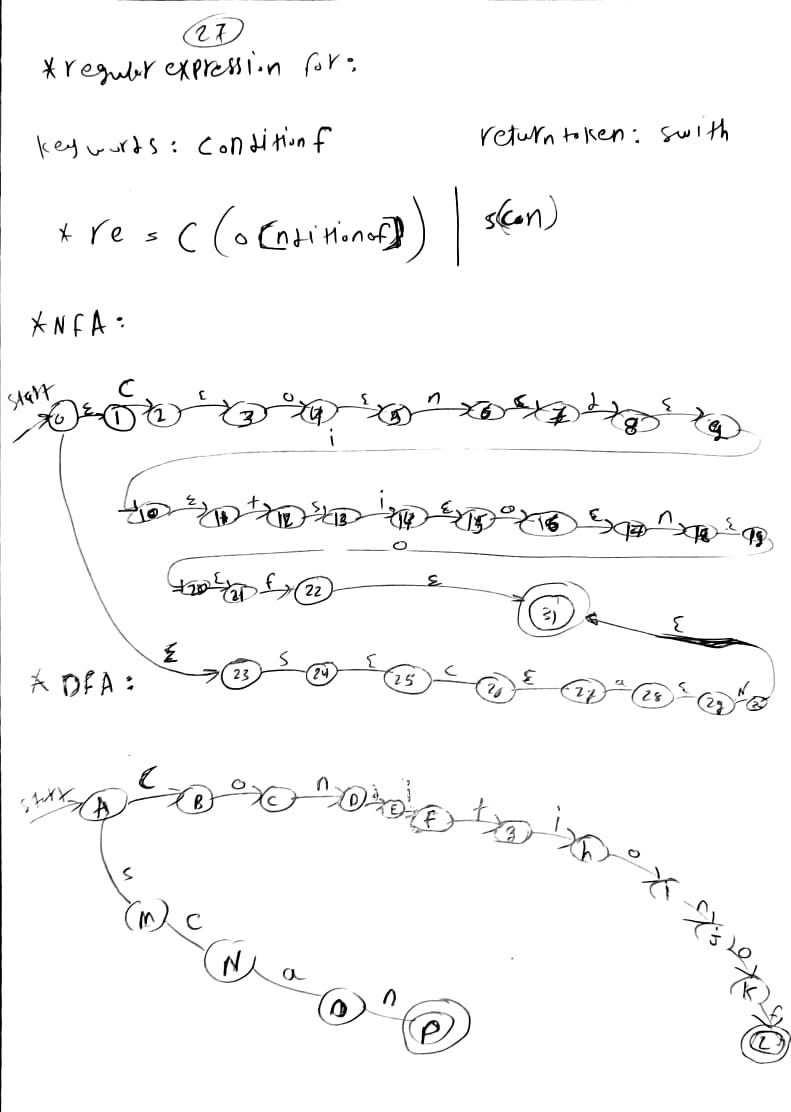 27
* regular expression for:
keywords: Conditionf return token: swith
* re = C (o [nditionof]) | s(can)
* NFA:
start 0 ε 1 C 2 ε 3 o 4 ε 5 n 6 ε 7 d 8 ε 9
i
10 ε 11 t 12 ε 13 i 14 ε 15 o 16 ε 17 n 18 ε 19
o
20 ε 21 f 22 ε 31
ε
* DFA: ε 23 S 24 ε 25 C 26 ε 27 a 28 ε 29 N 30
start A C B o C n D d E i F t g i h o I n j o K f L
s M C N a O n P